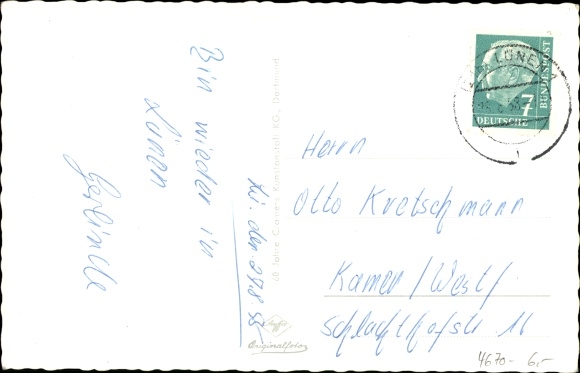 Lü. den 29.8.55
Bin wieder in
Lünen
Gerlinde
60 Jahre Cramers Kunstanstalt KG., Dortmund
Agfa
Originalfoto
LÜNEN
7
DEUTSCHE
BUNDESPOST
Herrn
Otto Kretschmann
Kamen/Westf.
Schlachthofstr. 16
4670- 6,-